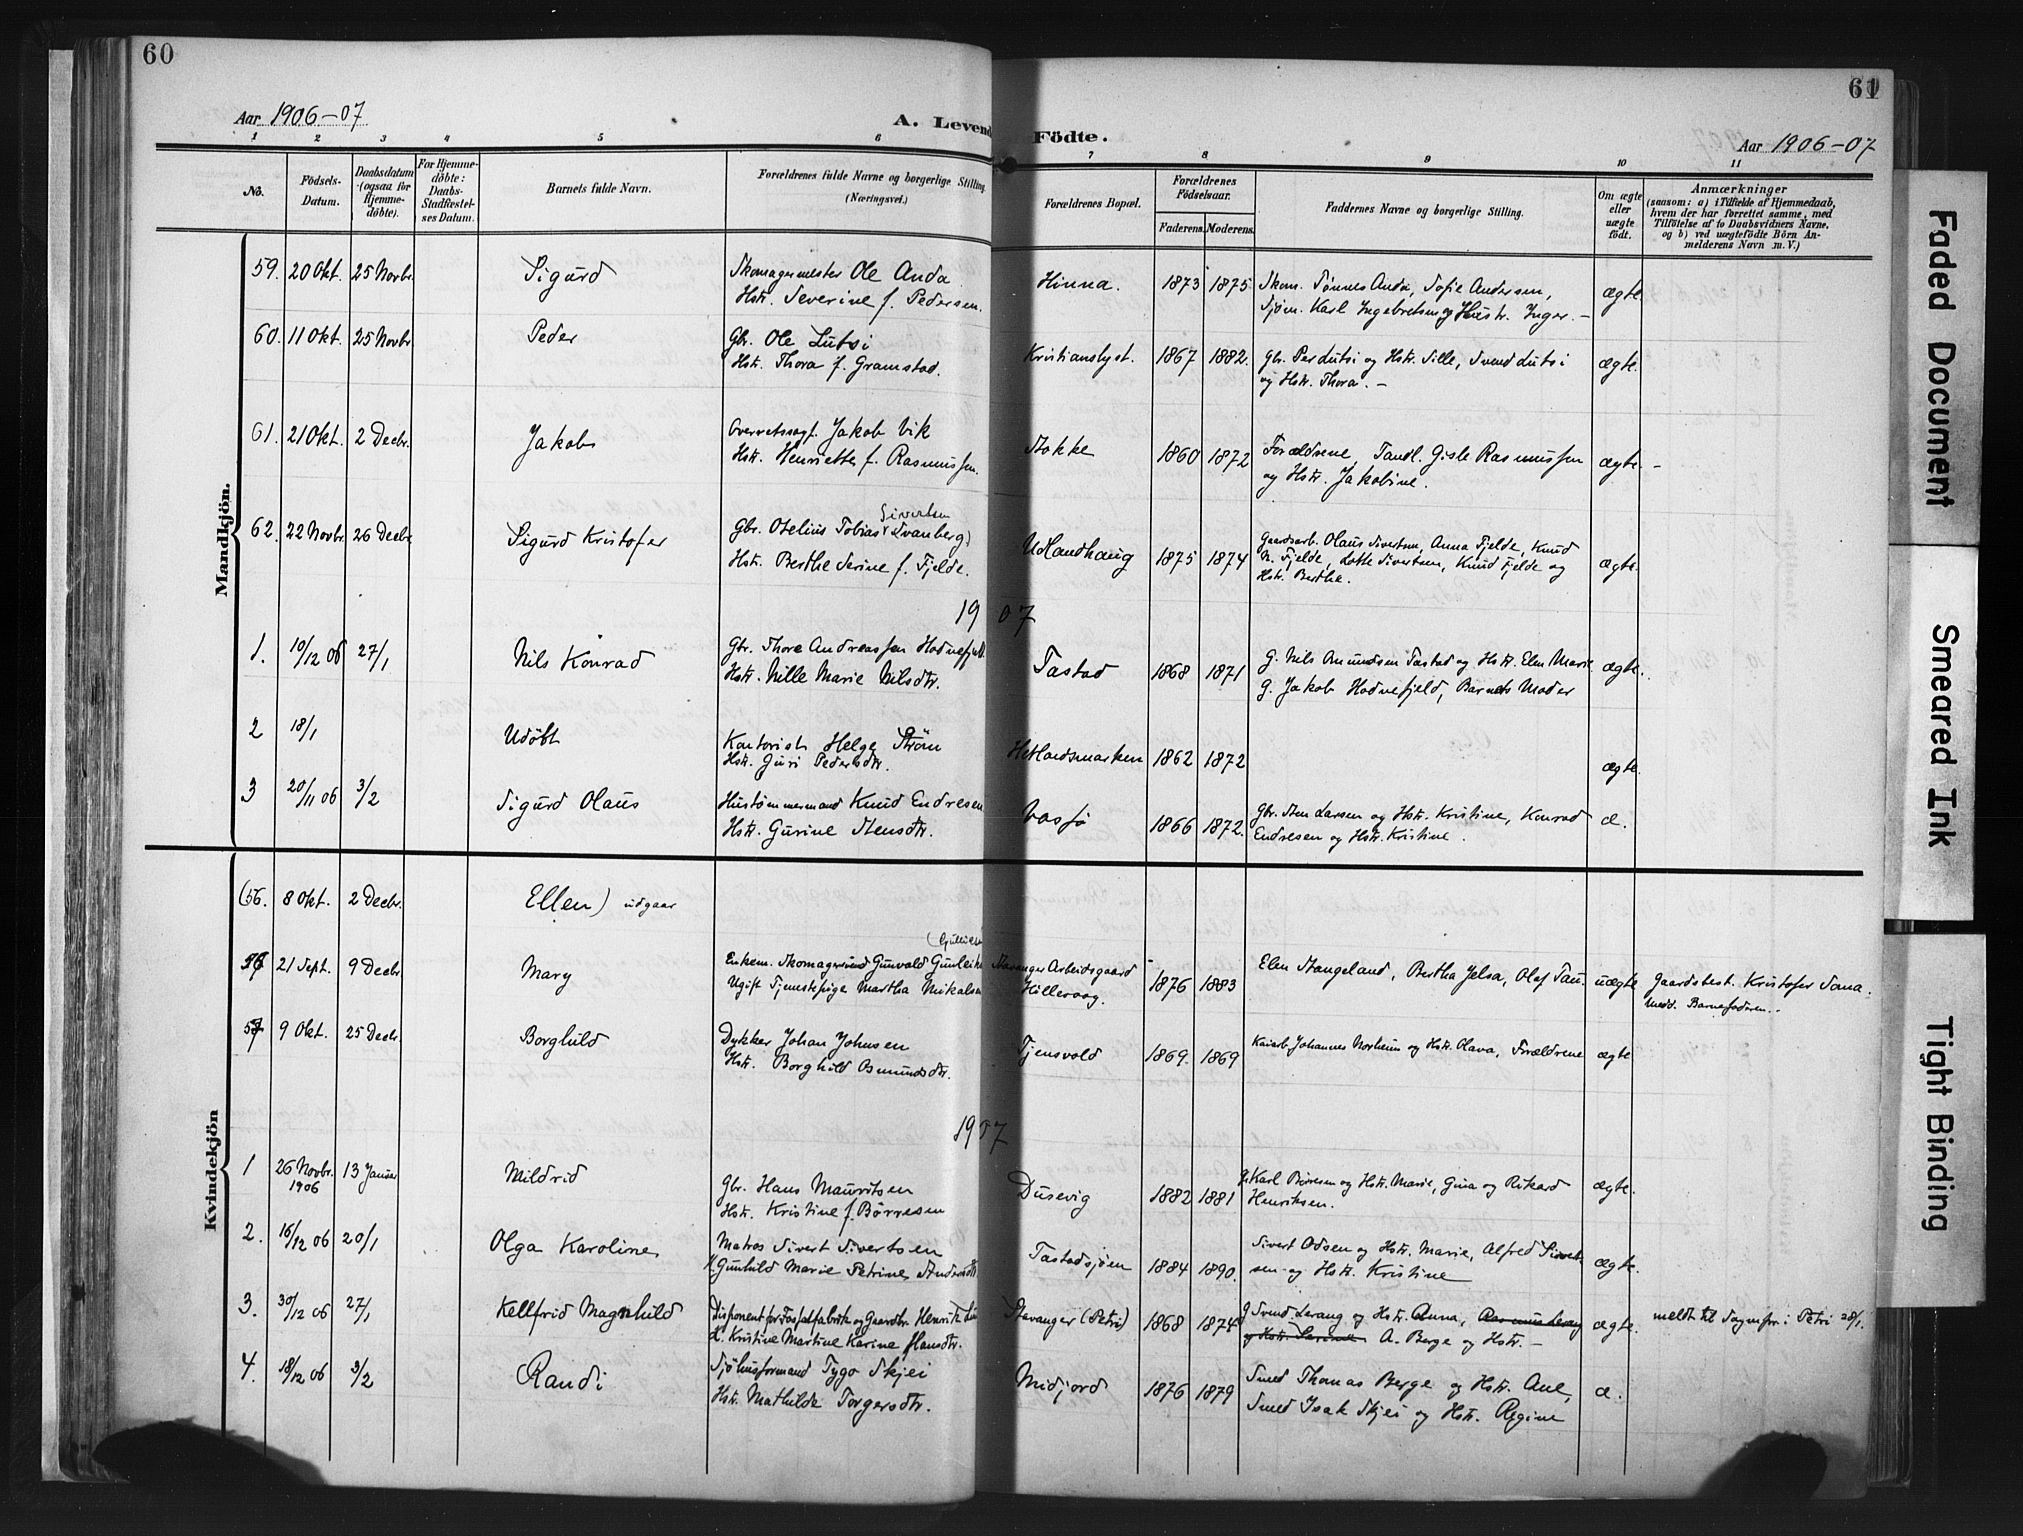 60
Aar 1906-07
A. Levende Födte.
61
Aar 1906-07
1 2 3 4 5 6 7 8 9 10 11
No.
Födsels-
Datum.
Daabsdatum
(ogsaa for
Hjemme-
döbte).
For Hjemme-
döbte:
Daabs-
Stadfæstel-
ses Datum.
Barnets fulde Navn.
Forældrenes fulde Navne og borgerlige Stilling.
(Næringsvei.)
Forældrenes Bopæl.
Forældrenes
Födselsaar.
Faderens. Moderens.
Faddernes Navne og borgerlige Stilling.
Om ægte
eller
uægte
födt.
Anmærkninger
(saasom: a) i Tilfælde af Hjemmedaab,
hvem der har forrettet samme, med
Tilföielse af to Daabsvidners Navne.
og b) ved uægtefödte Börn An-
melderens Navn m. V.)
Mandkjön.
59. 20 Okt. 25 Novbr. Sigurd Skomagermester Ole Anda Hinna. 1873 1875 Skom. Tønnes Anda, Sofie Andersen, ægte
Hstr. Severine f. Pedersen. Sjøm. Karl Ingebretsen og Hustr. Inger. -
60. 11 Okt. 25 Novbr Peder Gbr. Ole Lutsi Kristianslyst. 1867 1882. Gbr. Per Lutsi og Hstr. Sille, Svend Lutsi ægte.
Hstr. Thora f. Gramstad. og Hstr. Thora. -
61. 21 Okt. 2 Decbr. Jakob Overretssagf. Jakob Vik Stokke 1860 1872 Forældrene, Tandl. Gisle Rasmussen ægte. -
Hstr. Henriette f. Rasmussen. og Hstr. Jakobine.
62. 22 Novbr. 26 Decbr Sigurd Kristofer Gbr. Otelius Tobias Sivertsen (Svanberg) Ullandhaug 1875 1874 Gaardsarb. Olaus Sivertsen, Anna Fjelde, Knud ægte.
Hstr. Berthe Serine f. Fjelde. N. Fjelde, Lotte Sivertsen, Knud Fjelde og
Hstr. Berthe.
1907
1. 10/12 06 27/1 Nils Konrad Gbr. Thore Andreassen Hodnefjeld Tastad 1868 1871 G. Nils Amundsen Tastad og Hstr. Elen Marie ægte.
Hstr. Nille Marie Nilsdtr. G. Jakob Hodnefjeld, Barnets Moder
2 18/1 Udøbt Kontorist Helge Strøm Hetlandsmarken 1862 1872 ægte.
Hstr. Guri Pedersdtr.
3 20/11 06 3/2 Sigurd Olaus Hustømmermand Knud Endresen Vassø 1866 1872. Gbr. Sten Larsen og Hstr. Kristine, Konrad æ.
Hstr. Gurine Stensdtr. Endresen og Hstr. Kristine.
Kvindekjön
(56. 8 Okt. 2 Decbr. Ellen) udgaar
56 21 Sept. 9 Decbr. Mary Enkem. Skomagersvend Gunvald Gunleiks Stavanger Arbeidsgaard 1876 1883 Elen Stangeland, Bertha Jelsa, Olaf Tau. uægte Gaardsbest. Kristofer Soma.
Ugift Tjenestepige Martha Mikalsen Hillevaag. Medd. Barnefaderen.
57 9 Okt. 25 Decbr. Borghild Dykker Johan Johnsen Tjensvold 1869. 1869 Kaiarb. Johannes Norheim og Hstr. Olava, Forældrene ægte
Hstr. Borghild Osmundsdtr.
1907
1 26 Novbr. 1906 13 Januar Mildrid Gbr. Hans Mauritsen Dusevig 1882 1881 G. Karl Børresen og Hstr. Marie, Gina og Rikard ægte.
Hstr. Kristine f. Børresen Henriksen.
2. 16/12 06 20/1 Olga Karoline Matros Sivert Sivertsen Tastadsjøen 1884 1890. Sivert Odsen og Hstr. Marie, Alfred Sivert- ægte.
H. Gunhild Marie Petrine Andersdtr. sen og Hstr. Kristine
3. 30/12 06 27/1 Kellfrid Magnhild Disponent for Fosfatfabrik og Gaardbr. Henrik Stavanger (Petri) 1868 1874 G. Svend Lerang og Hstr. Anna, Rasmus Lerang ægte. meldt til Sognepr. i Petri 28/1.
Kristine Martine Karine Hansdtr. og Hstr. A. Berge og Hstr. -
4. 18/12 06 3/2 Randi Sjøhusformand Tygo Skjei Midjord 1876 1879 Smed Thomas Berge og Hstr. Ane, æ.
Hstr. Mathilde Torgersdtr. Smed Isak Skjei og Hstr. Regine
Faded Document
Smeared Ink
Tight Binding